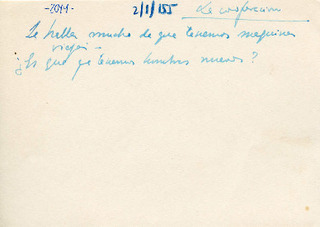 -2044- 2/1/155
Se habla mucho de que tenemos maquinas
viejas -
¿Es que tenemos hombres nuevos?